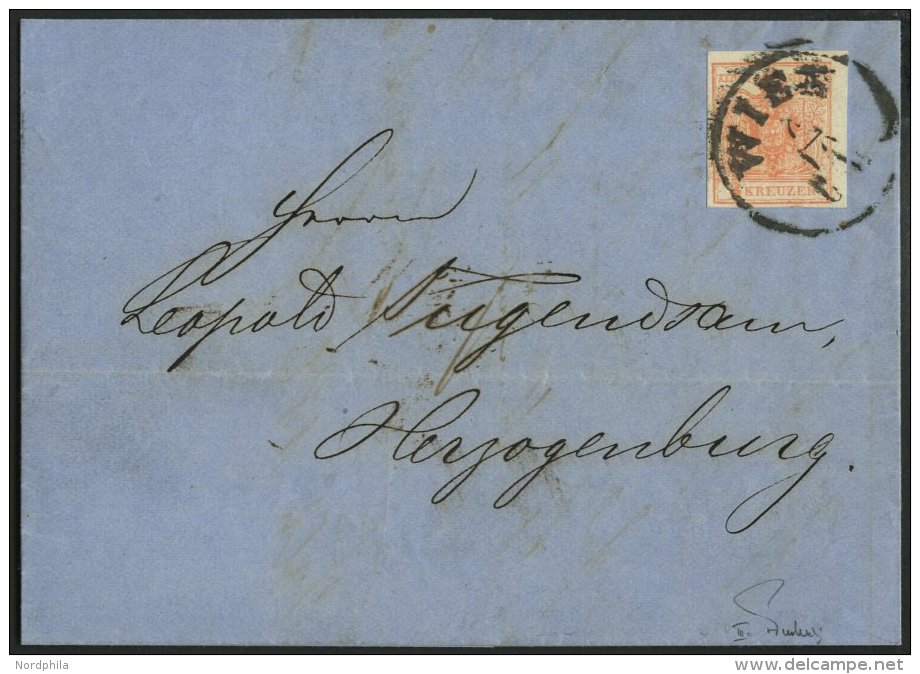 WIEN
KREUZER
Herrn
Leopold Tugendsam,
Herzogenburg.
III.
Nordphila
www.delcampe.net